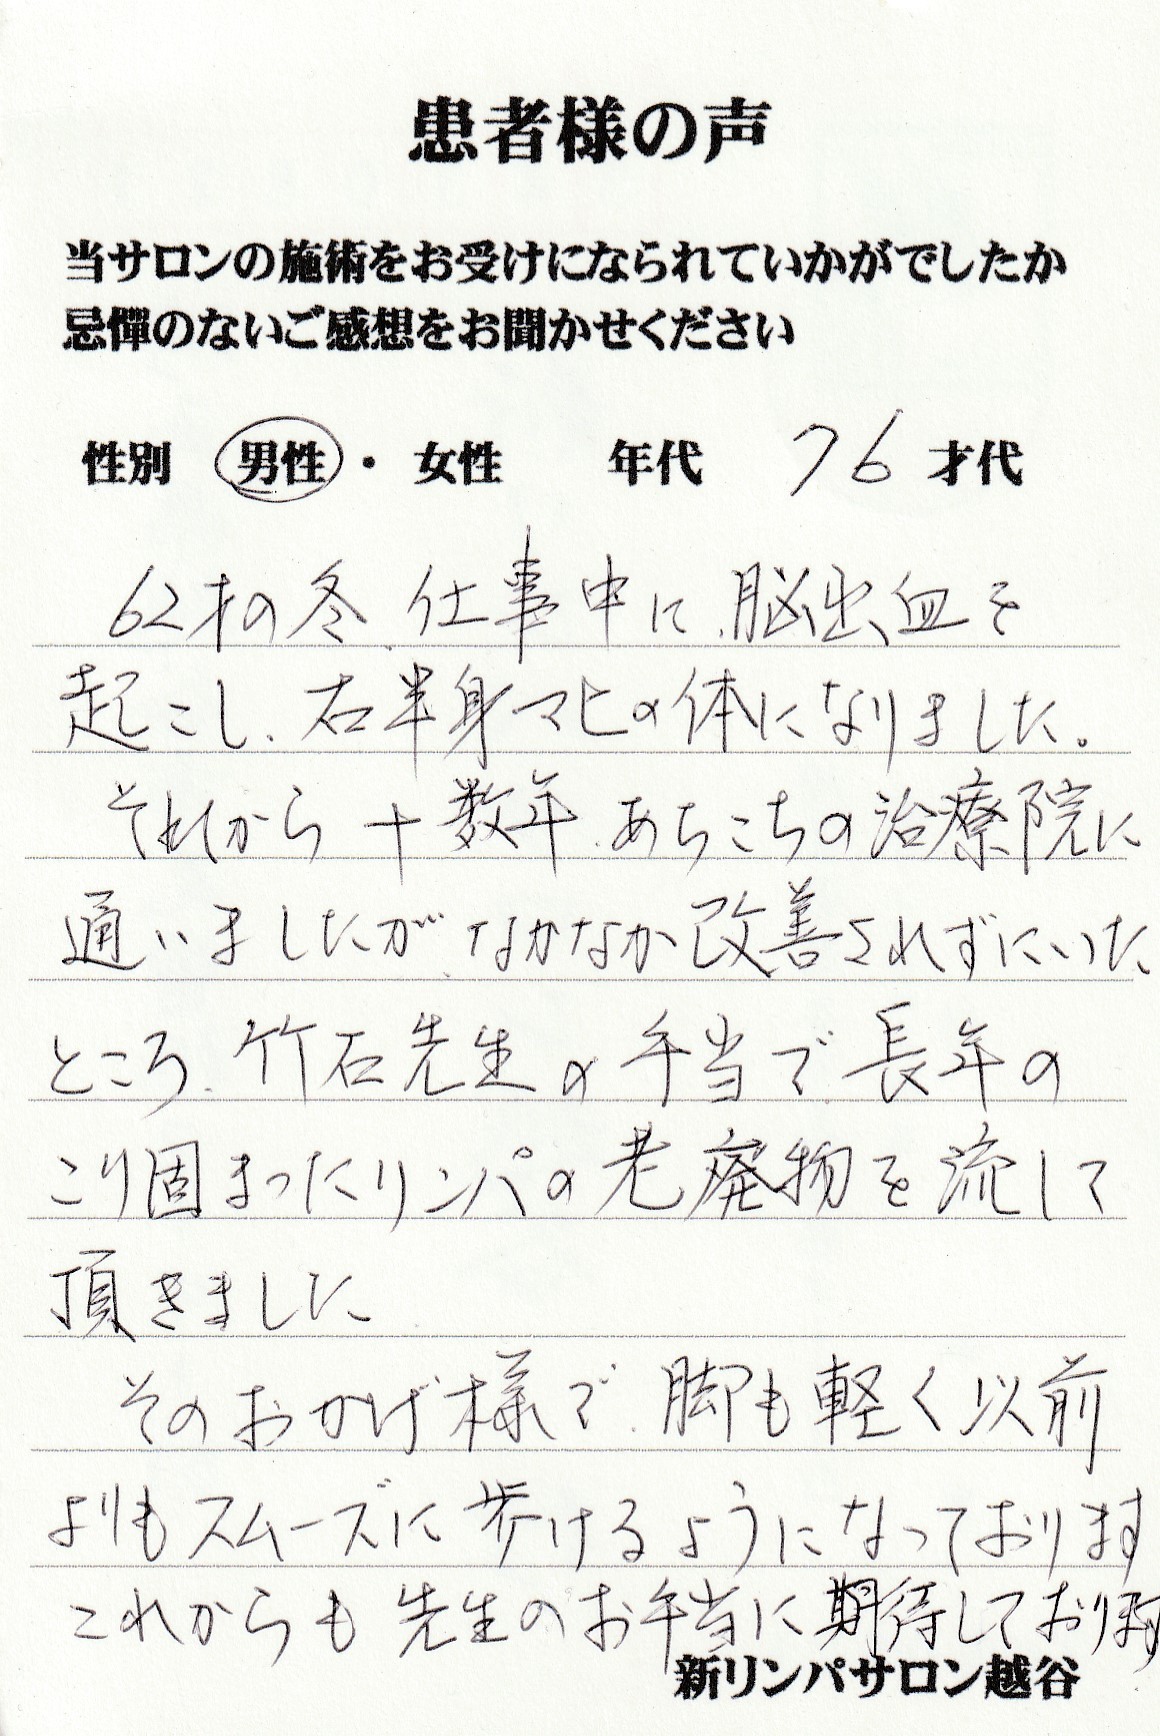 患者様の声
当サロンの施術をお受けになられていかがでしたか
忌憚のないご感想をお聞かせください
性別 男性・女性 年代 76才代
62才の冬、仕事中に、脳出血を
起こし、右半身マヒの体になりました。
それから十数年、あちこちの治療院に
通いましたが、なかなか改善されずにいた
ところ、竹石先生の手当で、長年の
こり固まったリンパの老廃物を流して
頂きました
そのおかげ様で、脚も軽く以前
よりもスムーズに歩けるようになっております
これからも先生のお手当に期待しております
新リンパサロン越谷